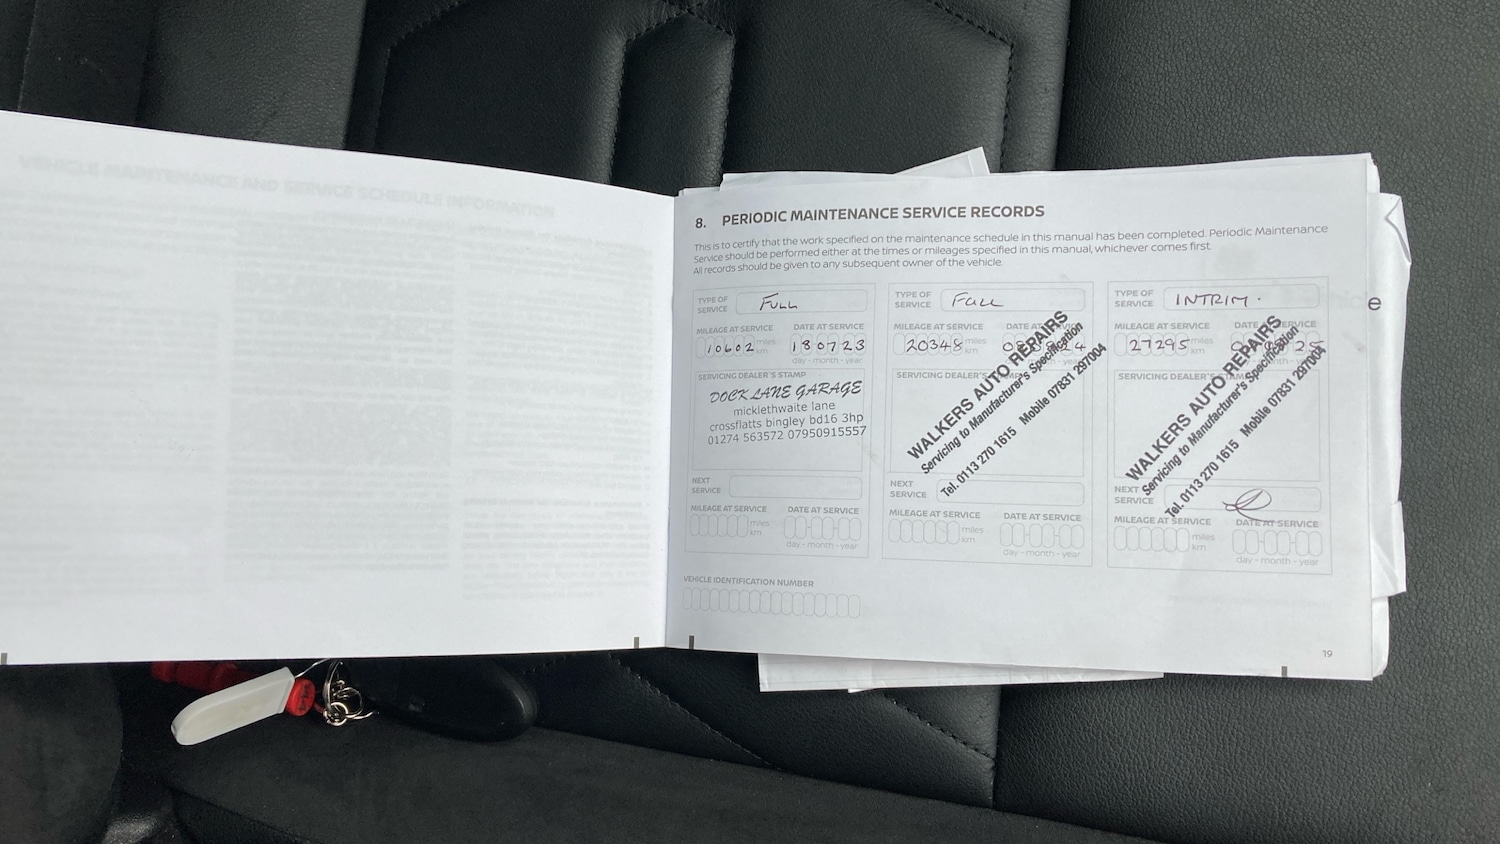 8. PERIODIC MAINTENANCE SERVICE RECORDS
This is to certify that the work specified on the maintenance schedule in this manual has been completed. Periodic Maintenance
Service should be performed either at the times or mileages specified in this manual, whichever comes first.
All records should be given to any subsequent owner of the vehicle.
TYPE OF SERVICE FULL
MILEAGE AT SERVICE DATE AT SERVICE
10602 miles km 180723
day - month - year
SERVICING DEALER'S STAMP
DOCK LANE GARAGE
micklethwaite lane
crossflatts bingley bd16 3hp
01274 563572 07950915557
NEXT SERVICE
MILEAGE AT SERVICE DATE AT SERVICE
miles km
day - month - year
TYPE OF SERVICE FULL
MILEAGE AT SERVICE DATE AT SERVICE
20348 miles km
SERVICING DEALER'S STAMP
WALKERS AUTO REPAIRS
Servicing to Manufacturer's Specification
Tel. 0113 270 1615 Mobile 07831 297004
NEXT SERVICE
MILEAGE AT SERVICE DATE AT SERVICE
miles km
day - month - year
TYPE OF SERVICE INTRIM.
MILEAGE AT SERVICE DATE AT SERVICE
27295 miles km
SERVICING DEALER'S STAMP
WALKERS AUTO REPAIRS
Servicing to Manufacturer's Specification
Tel. 0113 270 1615 Mobile 07831 297004
NEXT SERVICE
MILEAGE AT SERVICE DATE AT SERVICE
miles km
day - month - year
VEHICLE IDENTIFICATION NUMBER
19
e